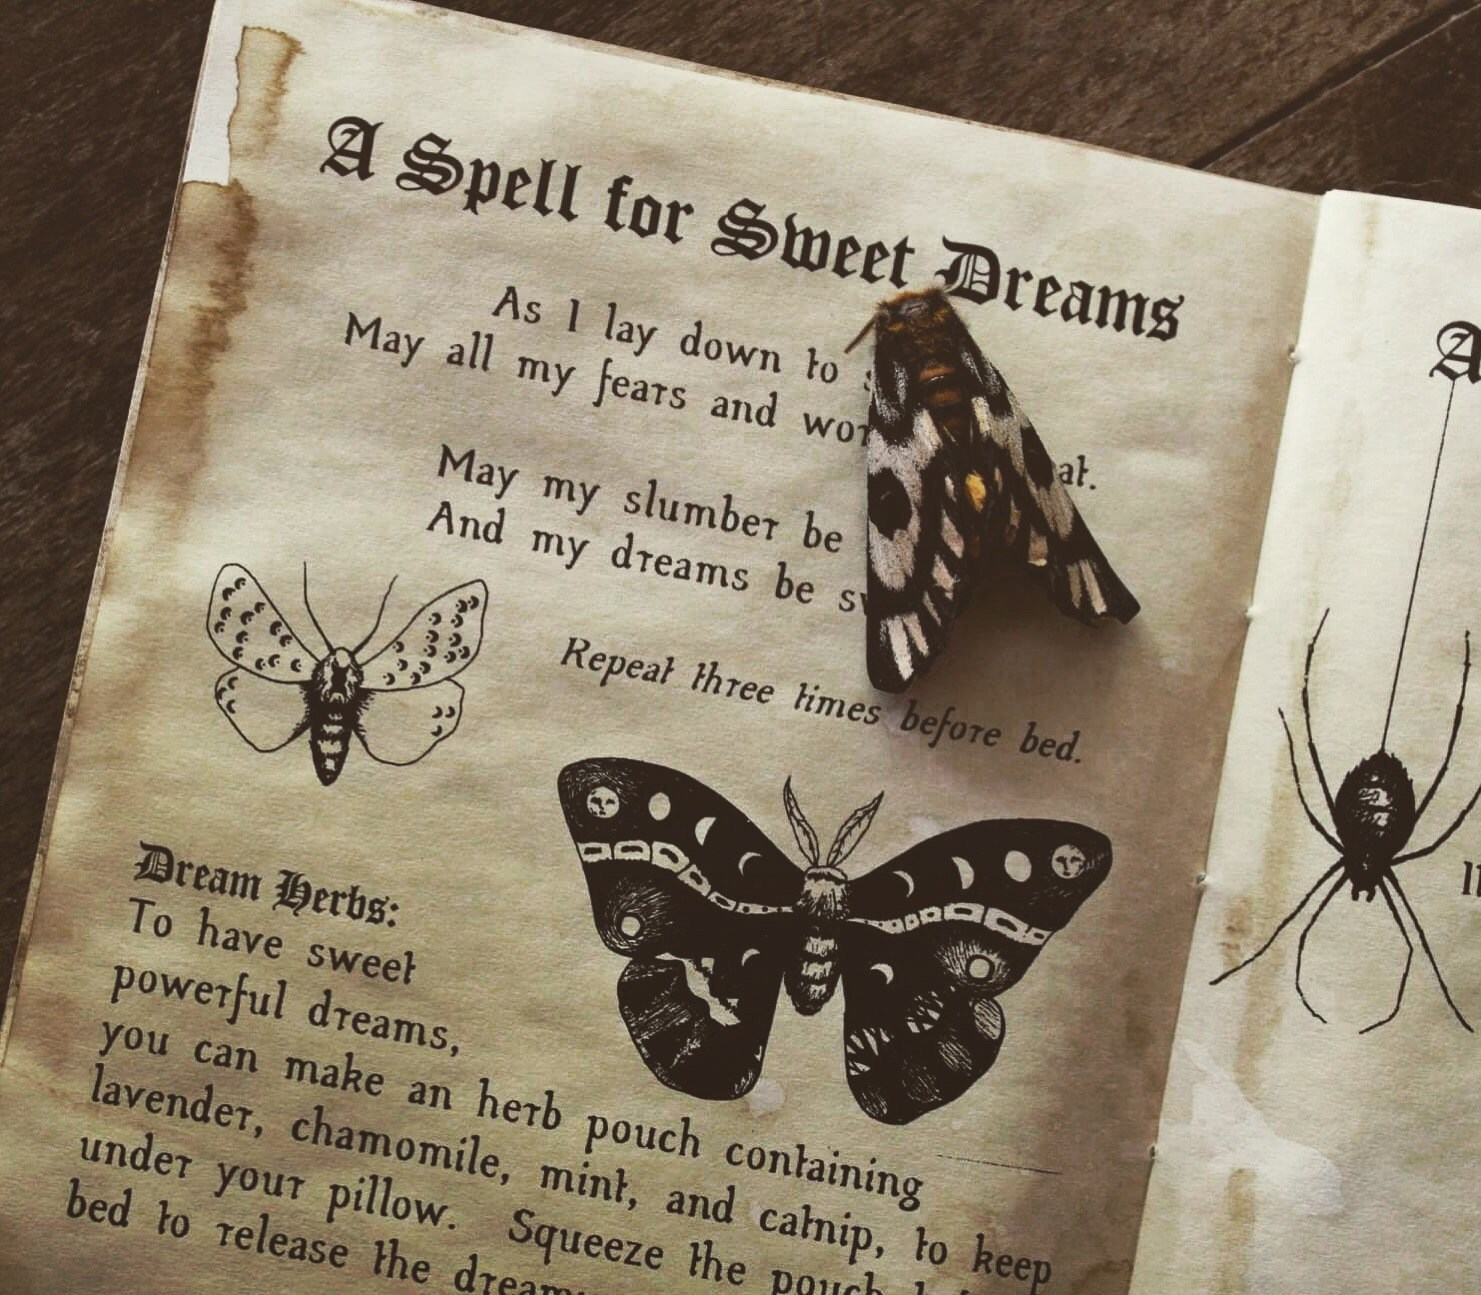 A Spell for Sweet Dreams
As I lay down to
May all my fears and
May my slumber be
And my dreams be
Repeat three times before bed.
Dream Herbs:
To have sweet
powerful dreams,
you can make an herb pouch containing
lavender, chamomile, mint, and catnip, to keep
under your pillow. Squeeze the pouch
bed to release the
A